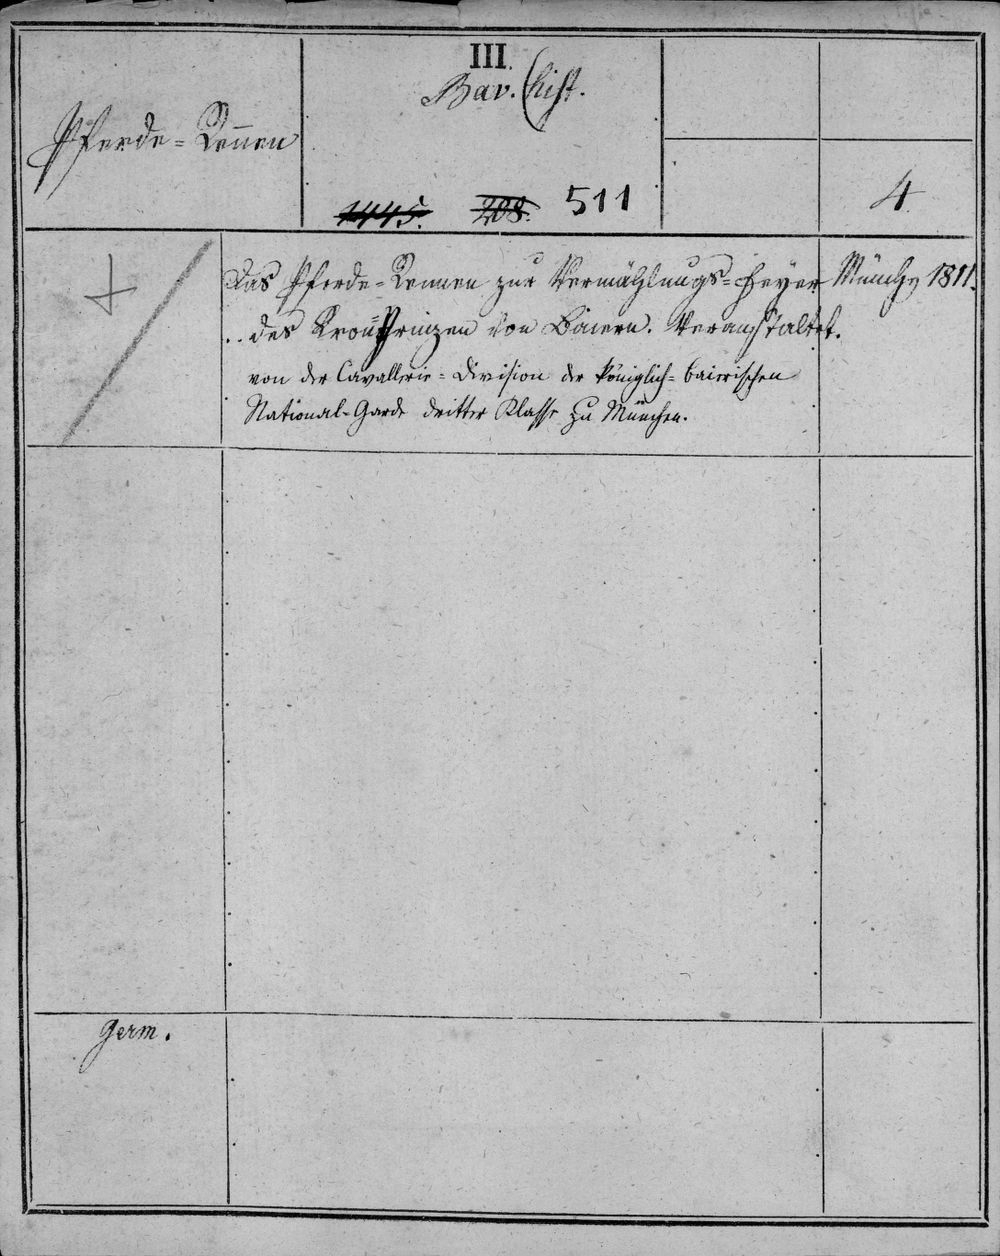 III.
Bav. Hist.
Pferde-Rennen
1445. 208. 511
4.
Das Pferde-Rennen zur Vermählungs-Feyer München 1811.
des Kron-Prinzen von Baiern. Veranstaltet.
von der Cavallerie-Division der königlich-baierischen
National-Garde dritter Klasse zu München.
germ.